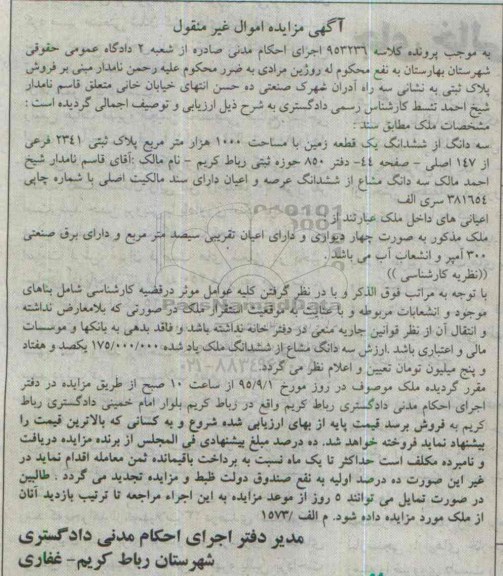 آگهی مزایده اموال غیر منقول
به موجب پرونده کلاسه ۹۵۳۲۳۶ اجرای احکام مدنی صادره از شعبه ۲ دادگاه عمومی حقوقی
شهرستان بهارستان به نفع محکوم له روژین مرادی به ضرر محکوم علیه رحمن نامدار مبنی بر فروش
پلاک ثبتی به نشانی سه راه آدران شهرک صنعتی ده حسن انتهای خیابان خانی متعلق قاسم نامدار
شیخ احمد تسط کارشناس رسمی دادگستری به شرح ذیل ارزیابی و توصیف اجمالی گردیده است :
مشخصات ملک مطابق سند :
سه دانگ از ششدانگ یک قطعه زمین با مساحت ۱۰۰۰ هزار متر مربع پلاک ثبتی ۲۳۴۱ فرعی
از ۱۴۷ اصلی - صفحه ۴۴- دفتر ۸۵۰ حوزه ثبتی رباط کریم - نام مالک :آقای قاسم نامدار شیخ
احمد مالک سه دانگ مشاع از ششدانگ عرصه و اعیان دارای سند مالکیت اصلی با شماره چاپی
۳۸۱۶۵۴ سری الف
اعیانی های داخل ملک عبارتند از
ملک مذکور به صورت چهار دیواری و دارای اعیان تقریبی سیصد متر مربع و دارای برق صنعتی
۳۰۰ آمپر و انشعاب آب می باشد .
((نظریه کارشناسی ))
با توجه به مراتب فوق الذکر و با در نظر گرفتن کلیه عوامل موثر درقضیه کارشناسی شامل بناهای
موجود و انشعابات مربوطه و با عنایت به موقعیت استقرار ملک در صورتی که بلامعارض نداشته
و انتقال آن از نظر قوانین جاریه منعی در دفتر خانه نداشته باشد و فاقد بدهی به بانکها و موسسات
مالی و اعتباری باشد .ارزش سه دانگ مشاع از ششدانگ ملک یاد شده ۱۷۵/۰۰۰/۰۰۰ یکصد و هفتاد
و پنج میلیون تومان تعیین و اعلام نظر می گردد.
مقرر گردیده ملک موصوف در روز مورخ ۹۵/۹/۱ از ساعت ۱۰ صبح از طریق مزایده در دفتر
اجرای احکام مدنی دادگستری رباط کریم واقع در رباط کریم بلوار امام خمینی دادگستری رباط
کریم به فروش برسد قیمت پایه از بهای ارزیابی شده شروع و به کسانی که بالاترین قیمت را
پیشنهاد نماید فروخته خواهد شد. ده درصد مبلغ پیشنهادی فی المجلس از برنده مزایده دریافت
و نامبرده مکلف است حداکثر تا یک ماه نسبت به پرداخت باقیمانده ثمن معامله اقدام نماید در
غیر این صورت ده درصد اولیه به نفع صندوق دولت ظبط و مزایده تجدید می گردد . طالبین
در صورت تمایل می توانند ۵ روز از موعد مزایده به این اجراء مراجعه تا ترتیب بازدید آنان
از ملک مورد مزایده داده شود. م الف /۱۵۷۳
مدیر دفتر اجرای احکام مدنی دادگستری
شهرستان رباط کریم- غفاری